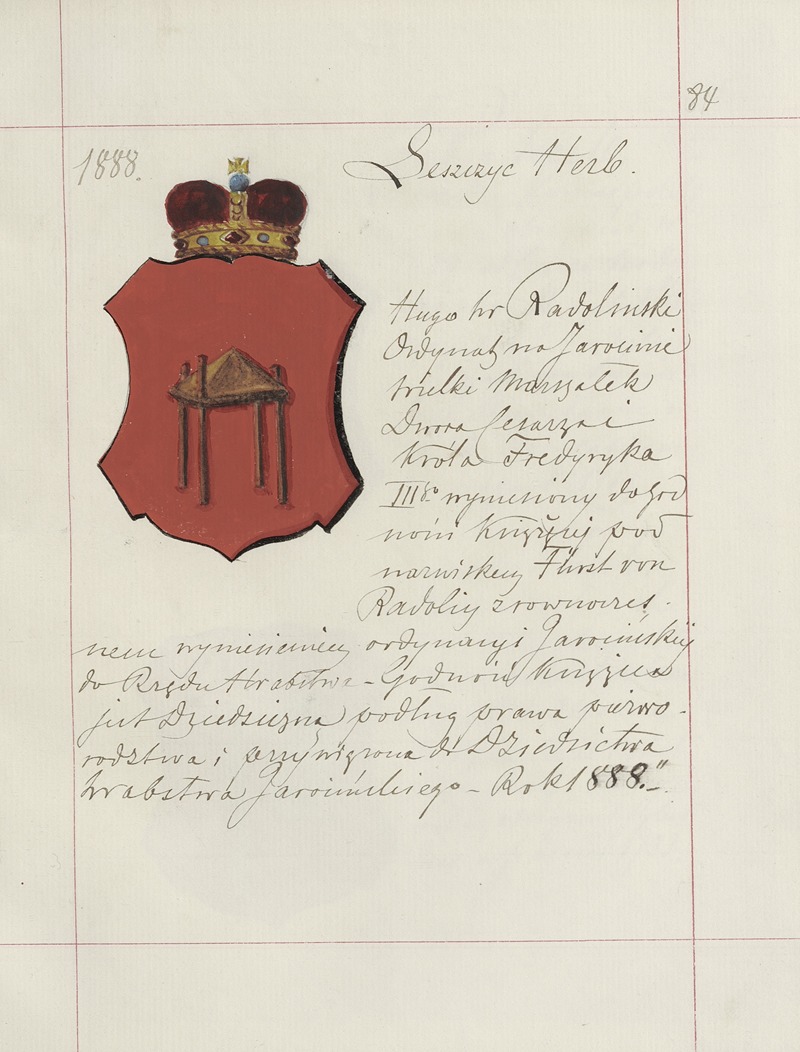 84
1888.
Leszczyc Herb.
Hugo hr Radolinski
Ordynat na Jarocinie
wielki Marszałek
Dwora Cesarza i
Króla Fredyryka
IIIgo wyniesiony do God
ności Książęcej pod
nazwiskem Fürst von
Radolin z rownoczes.
nem wyniesieniem ordynacyi Jarocińskiej
do Rzędu Hrabstwa – Godność Książęca
jest Dziedziczną podług prawa pierwo-
rodztwa i przywiązona do Dziedzictwa
hrabstwa Jarocińskiego – Rok 1888."